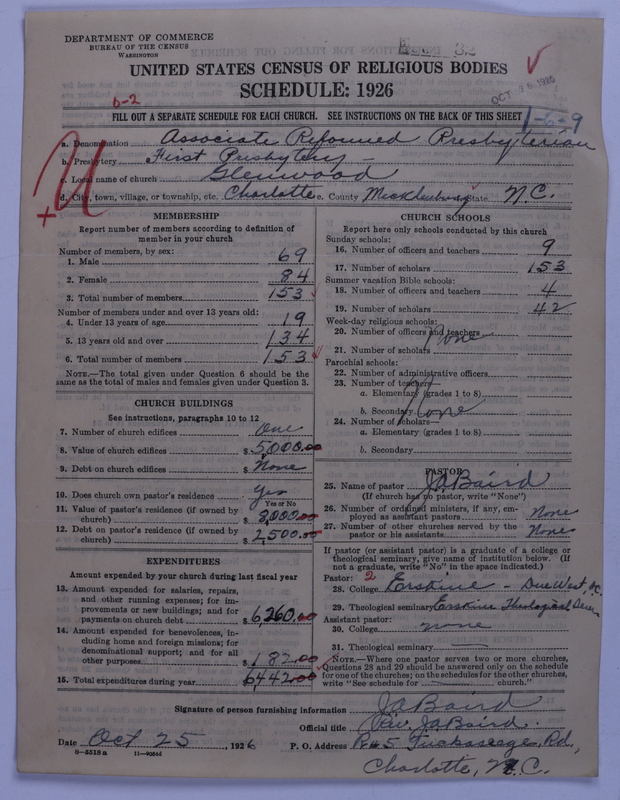 DEPARTMENT OF COMMERCE
BUREAU OF THE CENSUS
WASHINGTON
UNITED STATES CENSUS OF RELIGIOUS BODIES
SCHEDULE: 1926
6-2
FILL OUT A SEPARATE SCHEDULE FOR EACH CHURCH. SEE INSTRUCTIONS ON THE BACK OF THIS SHEET
1-6-9
a. Denomination Associate Reformed Presbyterian
b. Presbytery First Presbytery
c. Local name of church Glenwood
d. City, town, village, or township, etc. Charlotte e. County Mecklenburg State N.C.
MEMBERSHIP
Report number of members according to definition of member in your church
Number of members, by sex:
1. Male 69
2. Female 84
3. Total number of members 153
Number of members under and over 13 years old:
4. Under 13 years of age 19
5. 13 years old and over 134
6. Total number of members 153
NOTE.—The total given under Question 6 should be the same as the total of males and females given under Question 3.
CHURCH BUILDINGS
See instructions, paragraphs 10 to 12
7. Number of church edifices One
8. Value of church edifices $ 5,000.00
9. Debt on church edifices $ None
10. Does church own pastor's residence Yes
Yes or No
11. Value of pastor's residence (if owned by church) $ 3,000.00
12. Debt on pastor's residence (if owned by church) $ 2,500.00
EXPENDITURES
Amount expended by your church during last fiscal year
13. Amount expended for salaries, repairs, and other running expenses; for improvements or new buildings; and for payments on church debt $ 6,260.00
14. Amount expended for benevolences, including home and foreign missions; for denominational support; and for all other purposes $ 182.00
15. Total expenditures during year 6442.00
CHURCH SCHOOLS
Report here only schools conducted by this church
Sunday schools:
16. Number of officers and teachers 9
17. Number of scholars 153
Summer vacation Bible schools:
18. Number of officers and teachers 4
19. Number of scholars 42
Week-day religious schools:
20. Number of officers and teachers
None
21. Number of scholars
Parochial schools:
22. Number of administrative officers
23. Number of teachers—
a. Elementary (grades 1 to 8)
None
b. Secondary
24. Number of scholars—
a. Elementary (grades 1 to 8)
b. Secondary
PASTOR
25. Name of pastor J.A. Baird
(If church has no pastor, write "None")
26. Number of ordained ministers, if any, employed as assistant pastors None
27. Number of other churches served by the pastor or his assistants None
If pastor (or assistant pastor) is a graduate of a college or theological seminary, give name of institution below. (If not a graduate, write "No" in the space indicated.)
Pastor: 2
28. College Erskine - Due West, S.C.
29. Theological seminary Erskine Theological Sem
Assistant pastor:
30. College none
31. Theological seminary
NOTE.—Where one pastor serves two or more churches, Questions 28 and 29 should be answered only on the schedule for one of the churches; on the schedules for the other churches, write "See schedule for ____ church."
Signature of person furnishing information J.A. Baird
Official title Rev. J.A. Baird.
Date Oct 25, 1926 P. O. Address R#5 Tuckaseege Rd,
Charlotte, N.C.
8-5518a